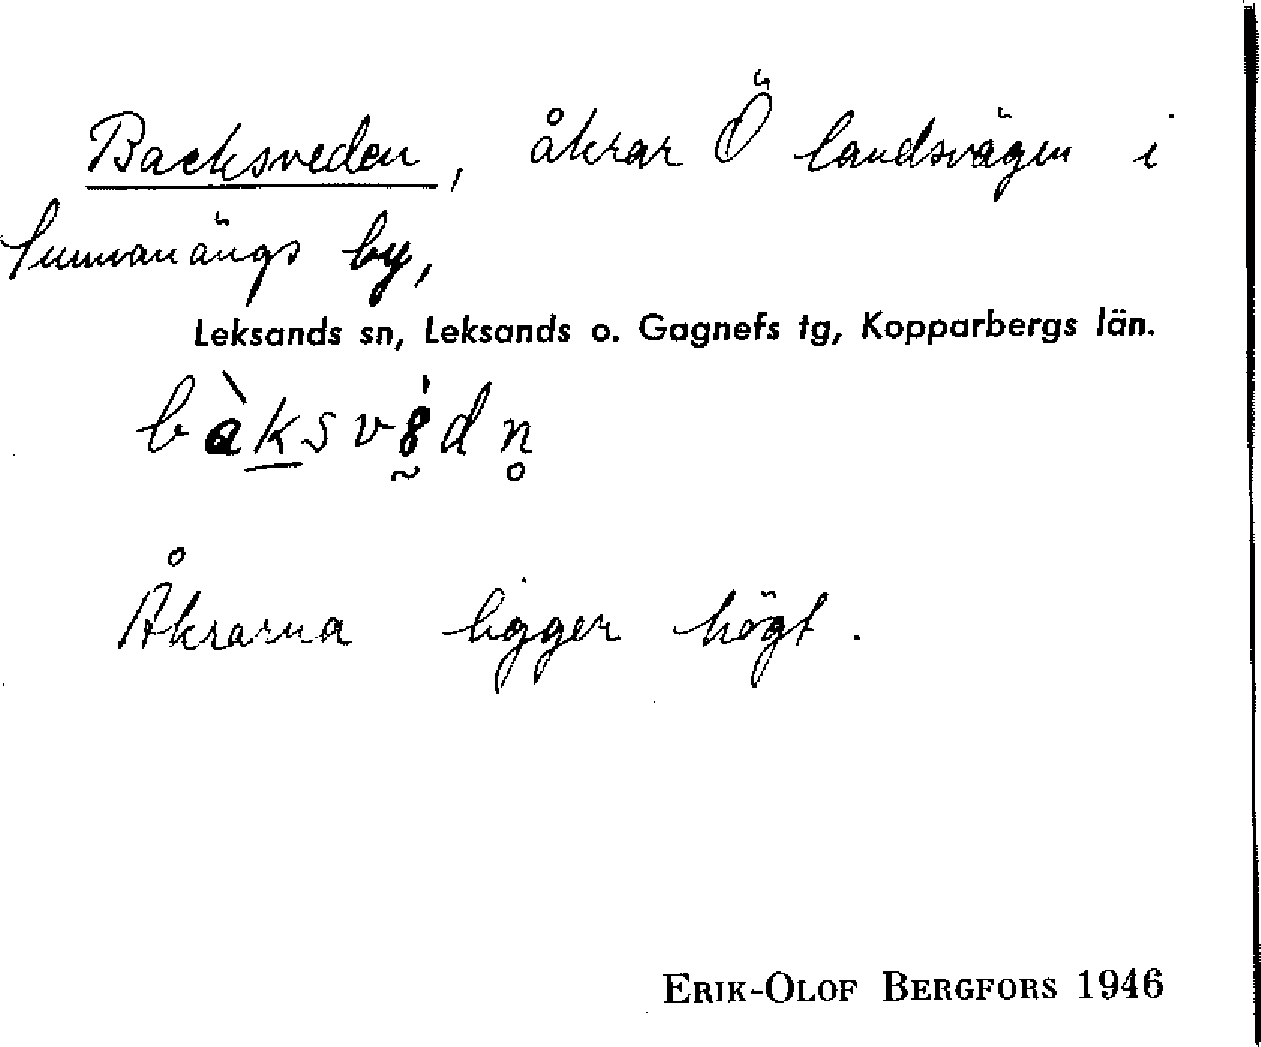 Backsveden, åkrar Ö landsvägen i
Sunnanängs by,
Leksands sn, Leksands o. Gagnefs tg, Kopparbergs län.
Åkrarna ligger högt.
ERIK-OLOF BERGFORS 1946